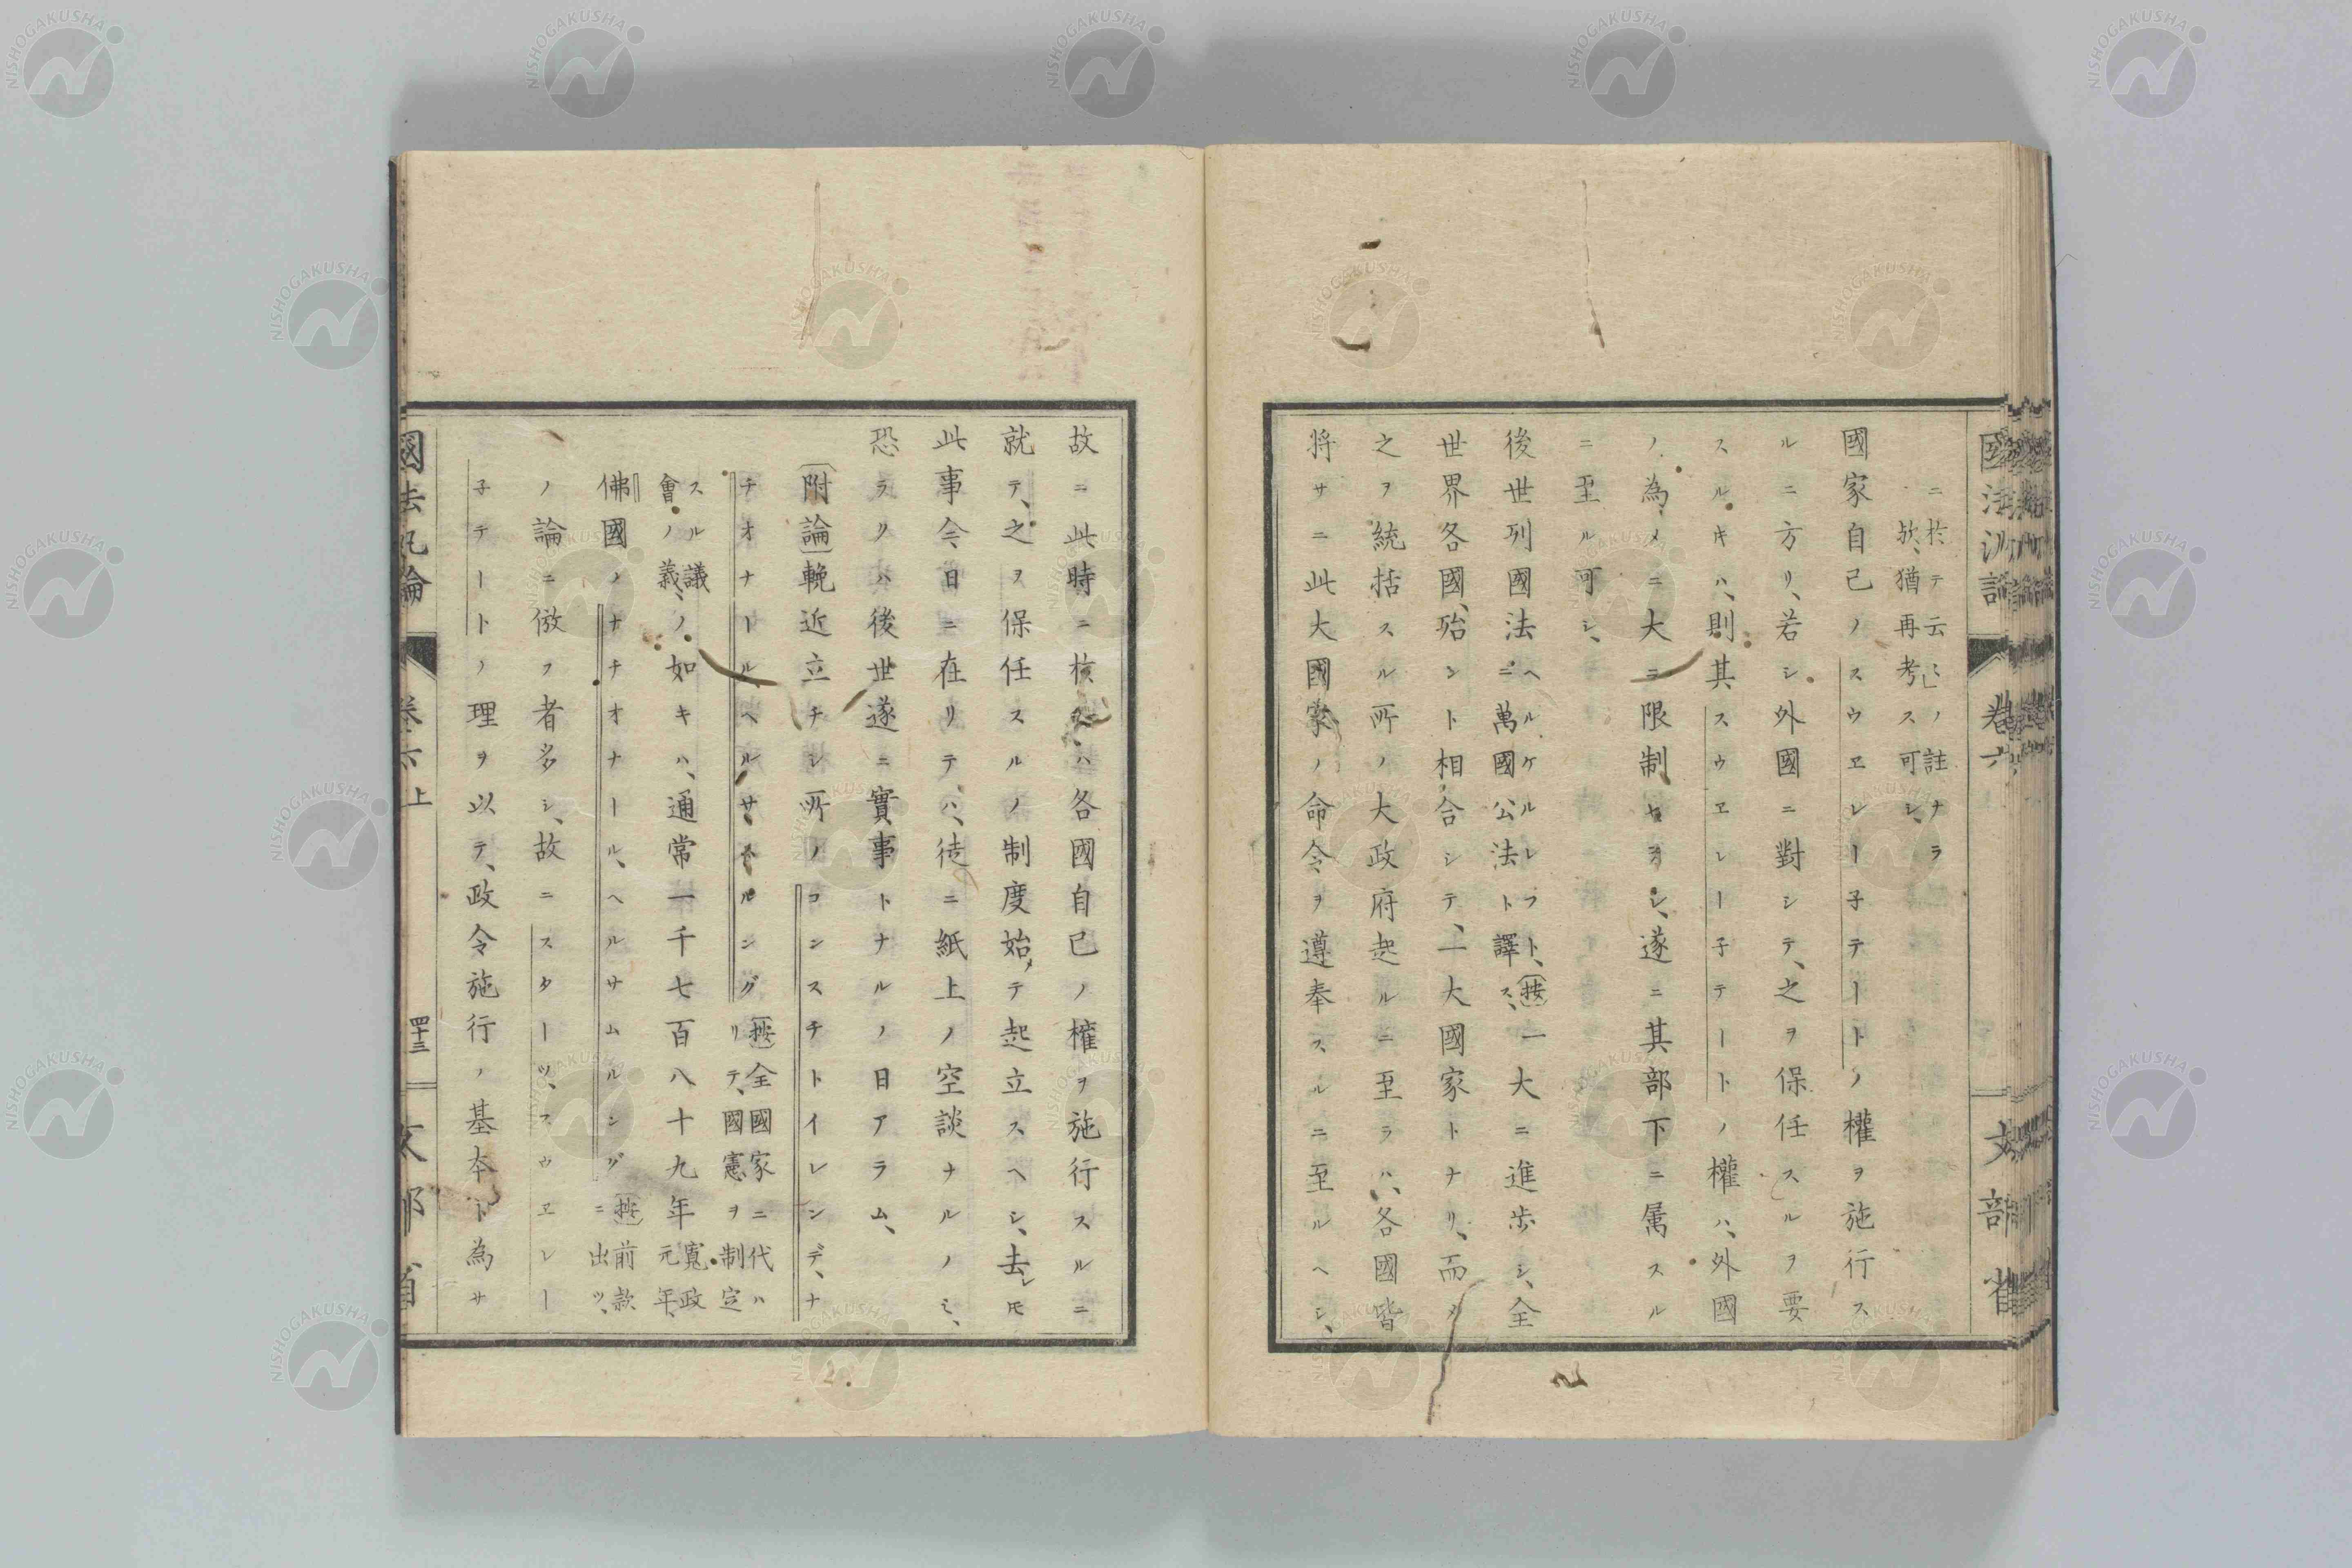 國法汎論 卷六 文部省
ニ於テ云々」ノ註ナラ
歟、猶再考ス可シ、
國家自己ノスウヱレー子テートノ權ヲ施行ス
ルニ方リ、若シ外國ニ對シテ、之ヲ保任スルヲ要
スルキハ、則其スウヱレー子テートノ權ハ、外國
ノ為メニ大ニ限制セラレ、遂ニ其部下ニ属スル
ニ至ル可シ、
後世列國法ニヘルケルレフト、萬國公法ト譯ス、(按)一大ニ進歩シ、全
世界各國、殆ント相合シテ、一大國家トナリ、而メ
之ヲ統括スル所ノ大政府起ルニ至ラハ、各國皆
将サニ此大國家ノ命令ヲ遵奉スルニ至ルヘシ、
故ニ此時ニ於テハ各國自己ノ權ヲ施行スルニ
就テ、之ヲ保任スルノ制度始メテ起立スヘシ、去レ𪜈
此事今日ニ在リテハ、徒ニ紙上ノ空談ナルノミ、
恐ラクハ後世遂ニ實事トナルノ日アラム、
(附論)輓近立チシ所ノコンスチトイレンデ、ナ
チオナールヘルサムルング(按)全國家ニ代ハリテ、國憲ヲ制定
スル議會ノ義、ノ如キハ、通常一千七百八十九年寛政元年、
佛國ノナチオナール、ヘルサムルング(按)前款ニ出ツ、
ノ論ニ倣フ者多シ、故ニスターツ、スウヱレー
子テートノ理ヲ以テ、政令施行ノ基本ト為サ
國法汎論 卷六上 四十三 文部省